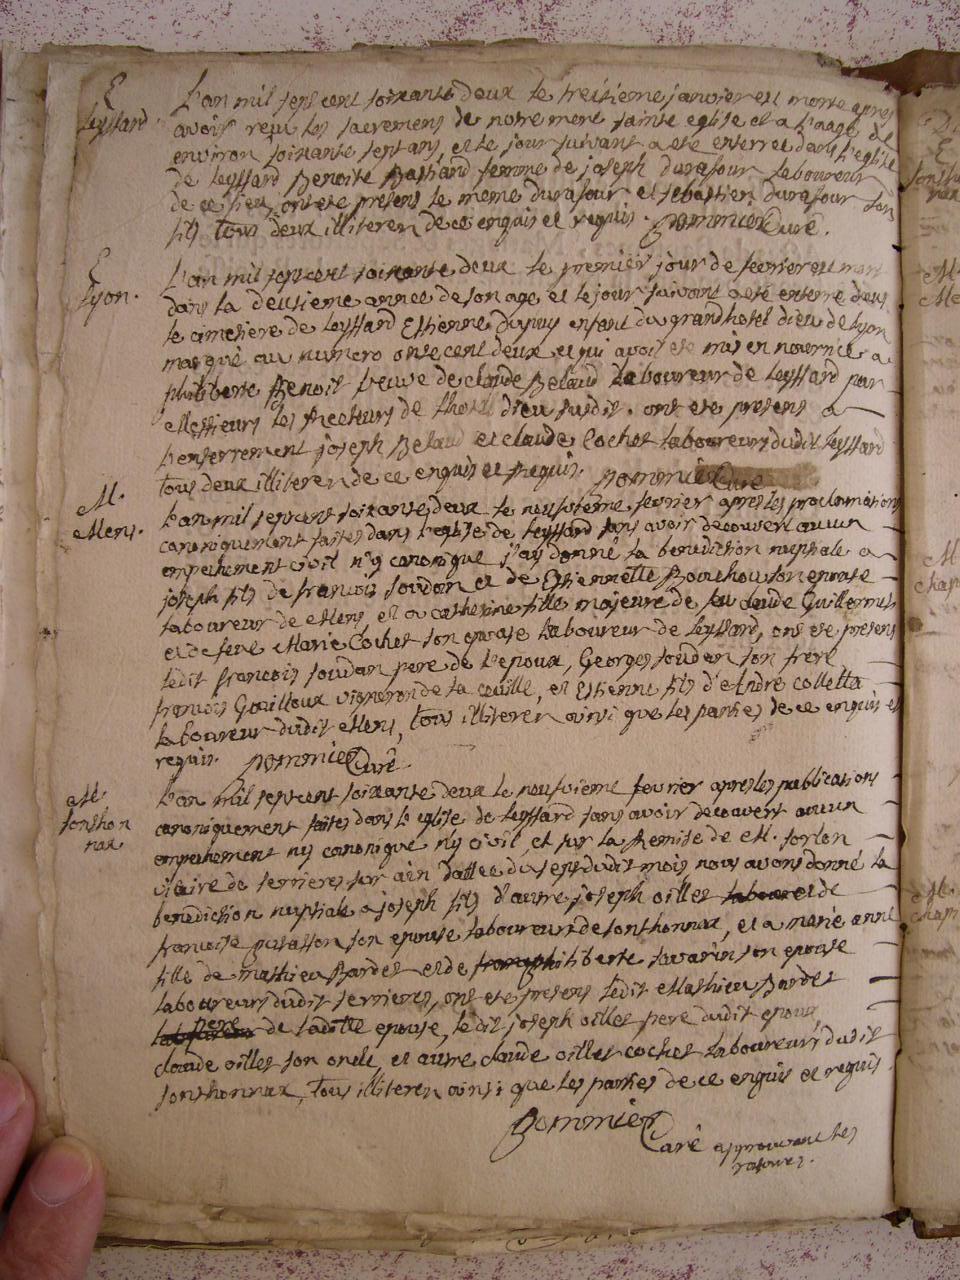 E
Leyssard
L'an mil sept cent soixante deux le treisieme janvier est morte apres
avoir reçu les sacremens de notre mere sainte eglise et a l'aage de
environ soixante sept ans, et le jour suivant a eté enterrée dans l'eglise
de Leyssard Benoite Bassard femme de joseph durafour laboureur
de ce lieu, ont eté presens le meme durafour et sebastien durafour son
fils tous deux illiteren de ce enquis et requis. Pommier Curé.
E
Lyon.
L'an mil sept cent soixante deux le premier jour de fevrier est mort
dans la deusieme année de son age et le jour suivant a eté enterré dans
le cimetiere de Leyssard Estienne dupuy enfant du grand hotel dieu de Lyon
marqué au numero onse cent deux et qui avoit eté mis en nourrice a
philiberte Benoit veuve de claude Belaud laboureur de Leyssard par
Messieurs les Recteurs de l'hotel dieu susdit. ont eté presens a
l'enterrement joseph Belaud et claude Cochet laboureurs dudit Leyssard
tous deux illiteren de ce enquis et requis. Pommier Curé
M.
Mens.
L'an mil sept cent soixante deux le neufvieme fevrier apres les proclamations
canoniquement faites dans l'eglise de Leyssard sans avoir decouvert aucun
empechement civil n'y canonique j'ay donné la benediction nuptiale a
joseph fils de francois soudan et de Estiennette Bouchou son epouse
laboureur de Mens, et a catherine fille majeure de feu claude Guillermet
et de feue Marie Cochet son epouse laboureur de Leyssard, ont eté presens
ledit francois soudan pere de l'epoux, Georges soudan son frere
francois Goailloux vigneron de la cueille, et Estienne fils d'André Colletta
laboureur dudit Mens, tous illiteren ainsi que les parties de ce enquis et
requis. Pommier Curé
M.
sonthon
nax
L'an mil sept cent soixante deux le neufvieme fevrier apres les publications
canoniquement faites dans l'eglise de Leyssard sans avoir decouvert aucun
empechement n'y canonique n'y civil, et sur la Remise de M. sorlon
vicaire de serrieres sur ain dattée du sept dudit mois nous avons donné la
benediction nuptiale a joseph fils d'autre joseph oilles et de
francoise son epouse laboureurs de sonthonnax, et a marie anne
fille de mathieu Bardet et de philiberte savarin son epouse
laboureurs dudit serrieres, ont eté presens ledit Mathieu Bardet
pere de ladite epouse, ledit joseph oilles pere dudit epoux,
claude oilles son oncle et autre claude oilles cochet laboureurs dudit
sonthonnax, tous illiteren ainsi que les parties de ce enquis et requis.
Pommier
Curé approuvant les
ratures.